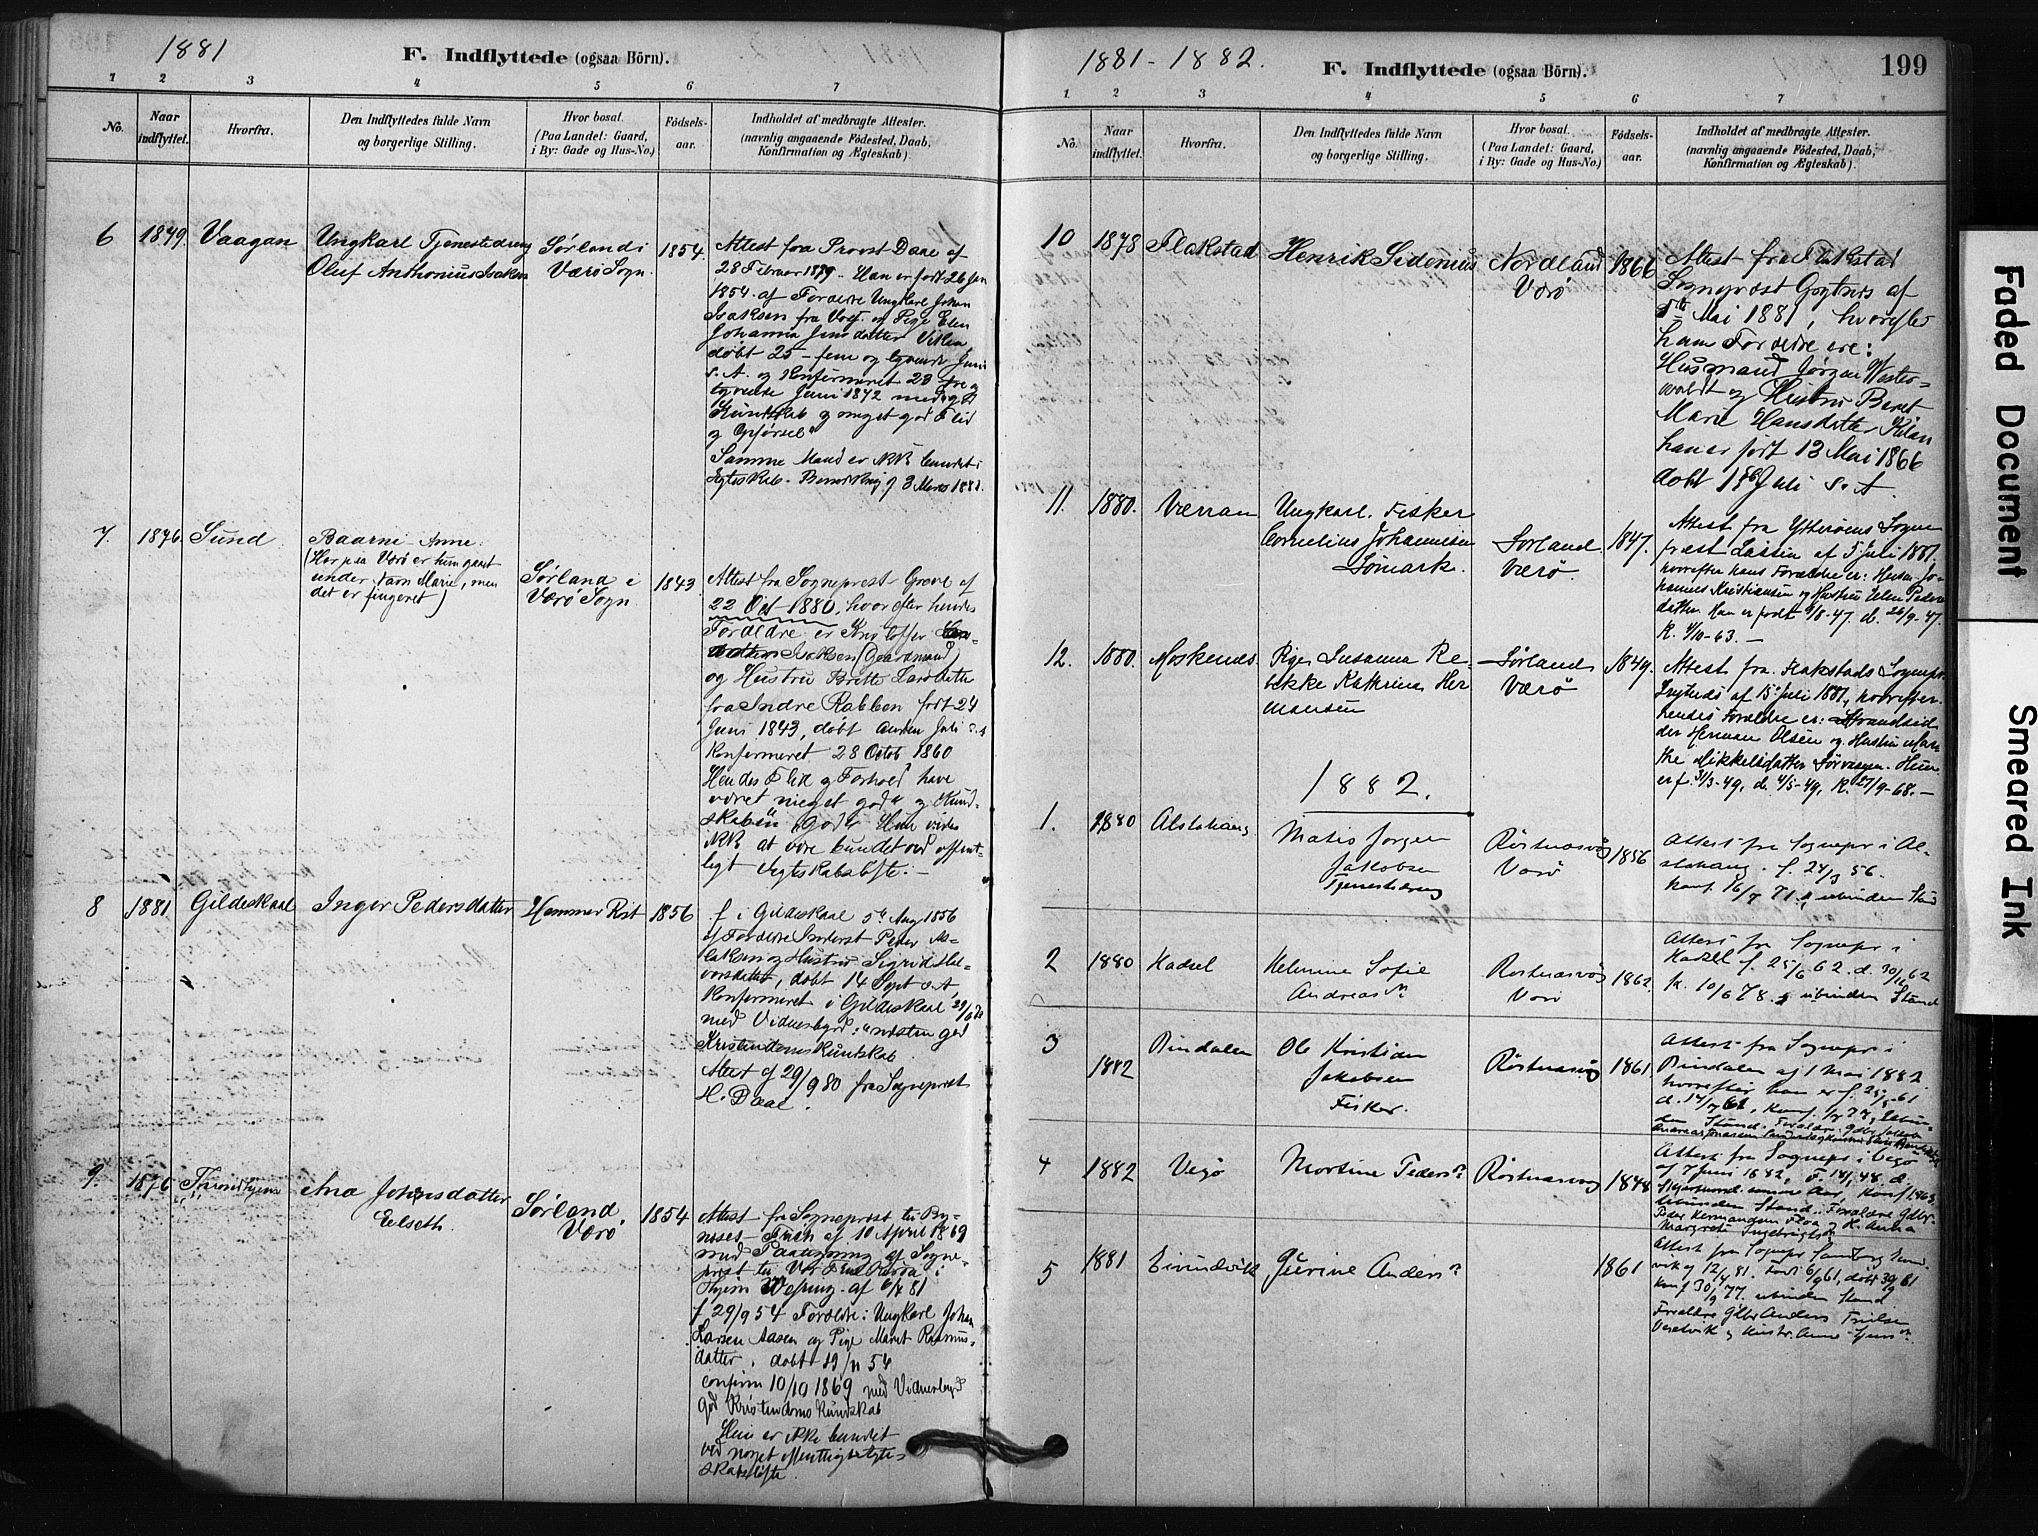 1881
F. Indflyttede (ogsaa Börn).
1 2 3 4 5 6 7
No.
Naar indflyttet.
Hvorfra.
Den Indflyttedes fulde Navn
og borgerlige Stilling.
Hvor bosat.
(Paa Landet: Gaard,
i By: Gade og Hus-No.)
Födsels-
aar.
Indholdet af medbragte Attester.
(navnlig angaaende Födested, Daab,
Konfirmation og Ægteskab).
6 1879 Vaagan
Ungkarl Tjenestedreng
Oluf Anthonius Isaksen
Sørland i
Værø Sogn
1854
Attest fra Provst Daae af
28 Februar 1879. Han er født 26 Jan
1854 af Forældre Ungkarl Johan
Isaksen fra og Pige Elen
Johanna Jensdatter
døbt 25 - fem og tyvende Juni
s. A. og Konfirmeret 23 - tre og
tyvende Juni 1872 med
Kundskab og meget god Flid
og Opførsel"
Samme Mand er ikke bundet i
Ægteskab. Bemærkning af 3 Marts 1881.
7. 1876 Sund
Baarni Anne.
(Her paa Værø er hun gaaet
under Navn Marie, men
det er fingeret)
Sørland i
Værø Sogn
1843
Attest fra Sogneprest Greve af
22 Oct 1880, hvorefter hendes
Forældre er Kristoffer
Isaksen (Gaardmand)
og Hustru Britte Larsdatter
fra Indre Rabben født 24
Juni 1843, døbt anden Juli s. A
Konfirmeret 28 Octob 1860
Hendes Flid og Forhold have
været meget god" og Kund-
skaben "god". Hun vides
ikke at være bundet ved offent-
ligt Ægteskabsløfte. -
8 1881 Gildeskaal
Inger Pedersdatter
Hammer Røst
1856
f i Gildeskaal 5te Aug 1856
af Forældre Inderst Peder As-
laksen og Hustru Sigrid Hal-
vorsdatter, døbt 14 Sept s. A
Konfirmeret i Gildeskaal
med Vidnesbyrd: "næsten god
Kristendomskundskab
Attest af 29/9 80 fra Sogneprest
H. Daae.
9. 1876 Throndhjem
Ana Johnsdatter
Eelseth.
Sørland,
Værø
1854
Attest fra Sogneprest til By-
næset - af 10 April 1869
med Paategning af Sogne-
prest til Vor Frue Kirke i
Thjem af 81
f 29/9 54 Forældre: Ungkarl Johan
Larsen Aasen og Pige Maret Rasmus-
datter, døbt 19/11 54
confirm 10/10 1869 med Vidnesbyrd
god Kristendoms Kundskab
Hun er ikke bundet
ved noget offentligt Ægte-
skabsløfte.
1881-1882.
F. Indflyttede (ogsaa Börn).
199
1 2 3 4 5 6 7
No.
Naar
indflyttet.
Hvorfra.
Den Indflyttedes fulde Navn
og borgerlige Stilling.
Hvor bosat.
(Paa Landet: Gaard,
i By: Gade og Hus-No.)
Födsels-
aar.
Indholdet af medbragte Attester.
(navnlig angaaende Födested, Daab,
Konfirmation og Ægteskab).
10 1878 Flakstad
Henrik Sidenius
Nordland
Værø
1866
Attest fra Flakstad
Sogneprest af
5te Mai 1881, hvorefter
hans Forældre ere:
Husmand Jørgen Wester-
waldt og Hustru Beret
Marie Hansdatter
han er født 13 Mai 1866
døbt 15de Juli s. A.
11. 1880. Værran
Ungkarl. Fisker
Cornelius Johannesen
Sømark.
Sørland
Værø.
1847.
Attest fra Ytterøens Sogne-
præst Lassen af 5 Juli 1881,
hvorefter hans Forældre er: Jo-
hannes Kristiansen og Hustru Elen Peders-
datter. Han er født 9/8-47. d. 26/9-47.
K. 4/10-63. -
12. 1880. Moskenes.
Pige Susanna Re-
bekke Kathrina Her
mansen
Sørland
Værø
1849.
Attest fra Flakstads Sognepr.
af 15 Juli 1881, hvorefter
hendes Forældre er: Strandsid
der Herman Olsen og Hustru Mar-
the Mikkelsdatter Sørvaagen. Hun
er f. 31/3-49, d. 4/5-49, K. 27/9-68. -
1882.
1. 1880 Alstahaug
Matis Jørgen
Jakobsen
Tjenestedreng
Røstnæsvåg
Værø
1856
Attest fra Sognepr i Al-
stahaug. f. 24/3 56.
Konf. 16/7 71. ubunden Stand
2 1880 Hadsel
Helmine Sofie
Andreasdr
Røstnæsvåg
Værø
1862.
Attest fra Sognepr i
Hadsel f. 25/6 62. d. 62
k. 10/6 78. ubunden Stand
3 1882 Bindalen
Ole Kristian
Jakobsen
Fisker.
Røstnæsvåg
1861
Attest fra Sognepr i
Bindalen af 1 Mai 1882
hvorefter han er f. 61
d. 14/7 61, konf. 1/7 77, ubun-
den Stand. Forældre: Gdbr. Jakob
4 1882 Vegø
Mortine Pedersdr
Røstnæsvåg
1848
Attest fra Sognepr i Vegø
af 7 Juni 1882, F. 48. d.
samme Aar, Konf 1863
ubunden Stand. Forældre Gdbr.
Peder Hermandsen Floa og H. Anna
Margrete Ingebrigtsdr
5 1881 Eivindvik
Gurine Andersdr
1861
Attest fra Sognepr
vik af 12/4 81. Født 6/9 61, døbt 61
Konf 30/9 77. ubunden Stand
Forældre Gdbr Anders
og Hustr. Anne
Faded Document
Smeared Ink